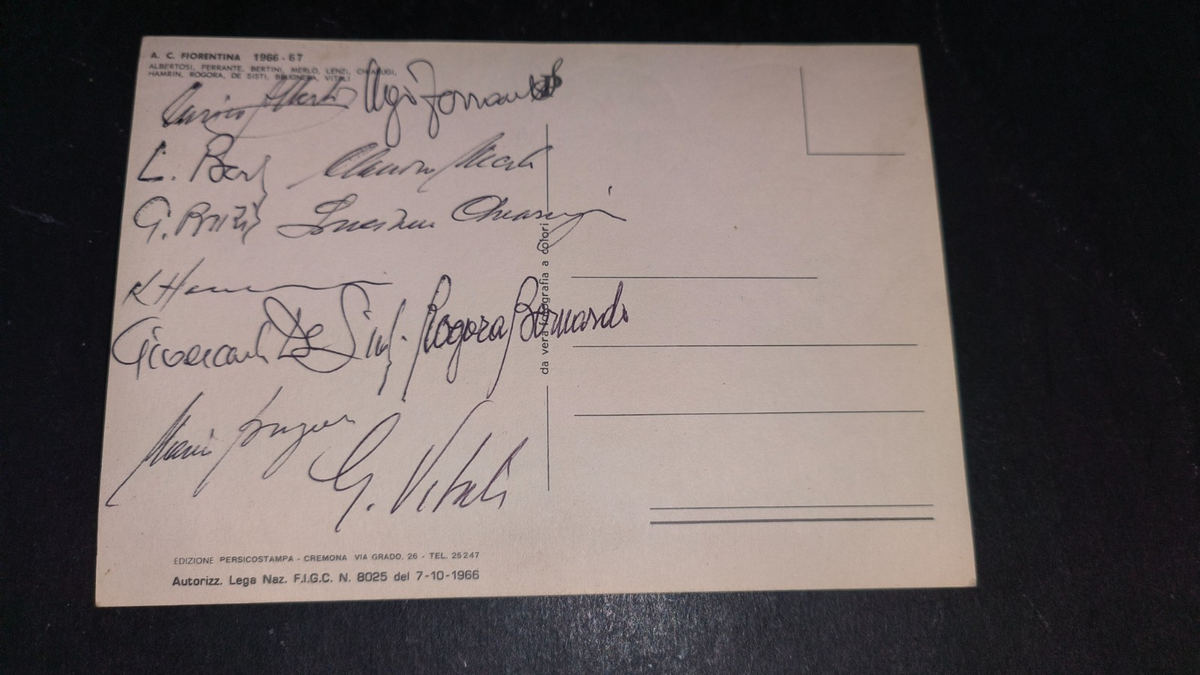 A. C. FIORENTINA 1966-67
ALBERTOSI, FERRANTE, BERTINI, MERLO, LENZI, CHIARUGI,
HAMRIN, ROGORA, DE SISTI, BRUGNERA, VITALI
Ugo Ferrante
L. Claudio Merlo
G. Luciano Chiarugi
K Hamrin
Giancarlo De Sisti Rogora Bernardo
Mario Brugnera
G. Vitali
da vera fotografia a colori
EDIZIONE PERSICOSTAMPA - CREMONA VIA GRADO, 26 - TEL. 25247
Autorizz. Lega Naz. F.I.G.C. N. 8025 del 7-10-1966